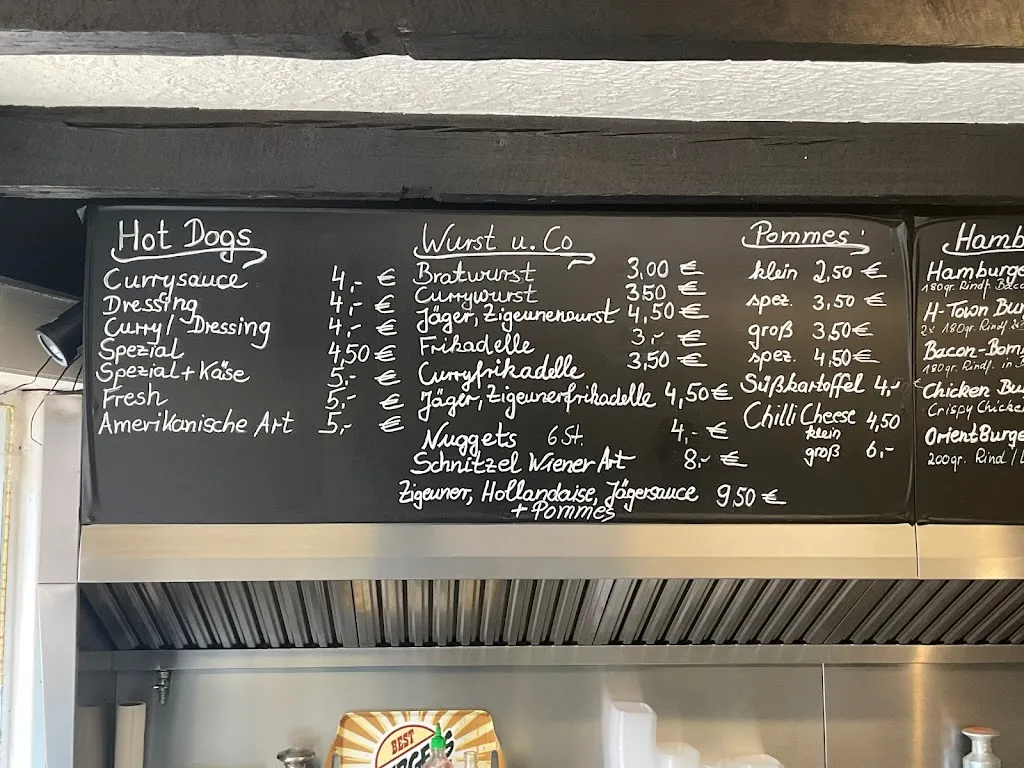 Hot Dogs
Currysauce 4,- €
Dressing 4,- €
Curry/-Dressing 4,- €
Spezial 4,50 €
Spezial + Käse 5,- €
Fresh 5,- €
Amerikanische Art 5,- €
Wurst u. Co
Bratwurst 3,00 €
Currywurst 350 €
Jäger, Zigeunerwurst 4,50 €
Frikadelle 3,- €
Curryfrikadelle 3,50 €
Jäger, Zigeunerfrikadelle 4,50 €
Nuggets 6 St. 4,- €
Schnitzel Wiener Art 8,- €
Zigeuner, Hollandaise, Jägersauce 9,50 €
+ Pommes
Pommes
klein 2,50 €
spez. 3,50 €
groß 3,50 €
spez. 4,50 €
Süßkartoffel 4,- €
Chilli Cheese 4,50
klein
groß 6,-
Hamb
Hamburge
180gr. Rindf. Baco
H-Town Bu
2x 180gr. Rindf. 2x
Bacon-Bom
180gr. Rindf. in S
Chicken Bu
Crispy Chicke
Orient Burge
200gr. Rind / L
BEST